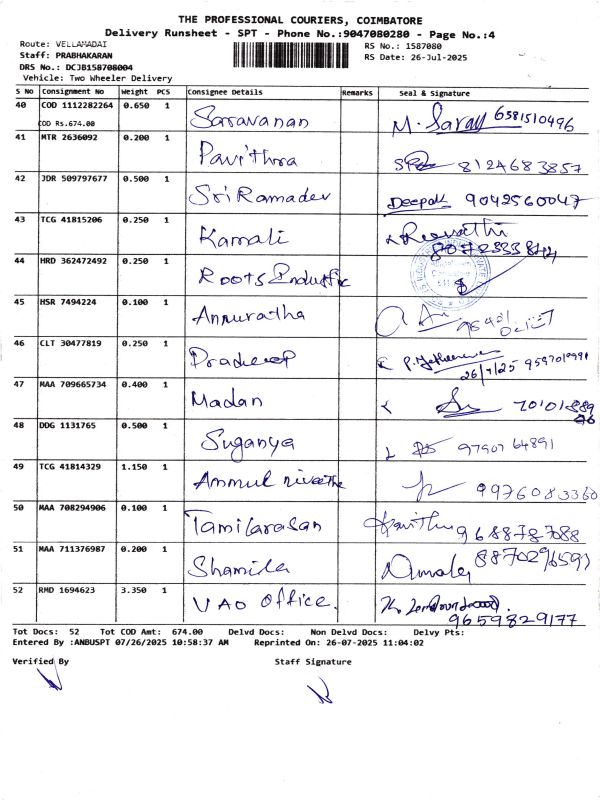 THE PROFESSIONAL COURIERS, COIMBATORE
Delivery Runsheet - SPT - Phone No.:9047080280 - Page No.:4
Route: VELLAMADAI RS No.: 1587080
Staff: PRABHAKARAN RS Date: 26-Jul-2025
DRS No.: DCJB158708004
Vehicle: Two Wheeler Delivery
S No Consignment No Weight PCS Consignee Details Remarks Seal & Signature
40 COD 1112282264 0.650 1 Saravanan M. Saray 6581510496
COD Rs.674.00
41 MTR 2636092 0.200 1 Pavithra 8124683857
42 JDR 509797677 0.500 1 Sri Ramadev Deepak 9042560047
43 TCG 41815206 0.250 1 Kamali Revathi
44 HRD 362472492 0.250 1 Roots Industric
45 HSR 7494224 0.100 1 Annuratha
46 CLT 30477819 0.250 1 Pradeep P.
26/7/25
47 MAA 709665734 0.400 1 Madan
48 DDG 1131765 0.500 1 Suganya 97907 64891
49 TCG 41814329 1.150 1 Ammul nivetha 9976083360
50 MAA 708294906 0.100 1 Tamilarasan 9688787088
51 MAA 711376987 0.200 1 Shamila 8870296593
52 RMD 1694623 3.350 1 VAO office.
9659829177
Tot Docs: 52 Tot COD Amt: 674.00 Delvd Docs: Non Delvd Docs: Delvy Pts:
Entered By :ANBUSPT 07/26/2025 10:58:37 AM Reprinted On: 26-07-2025 11:04:02
Verified By Staff Signature